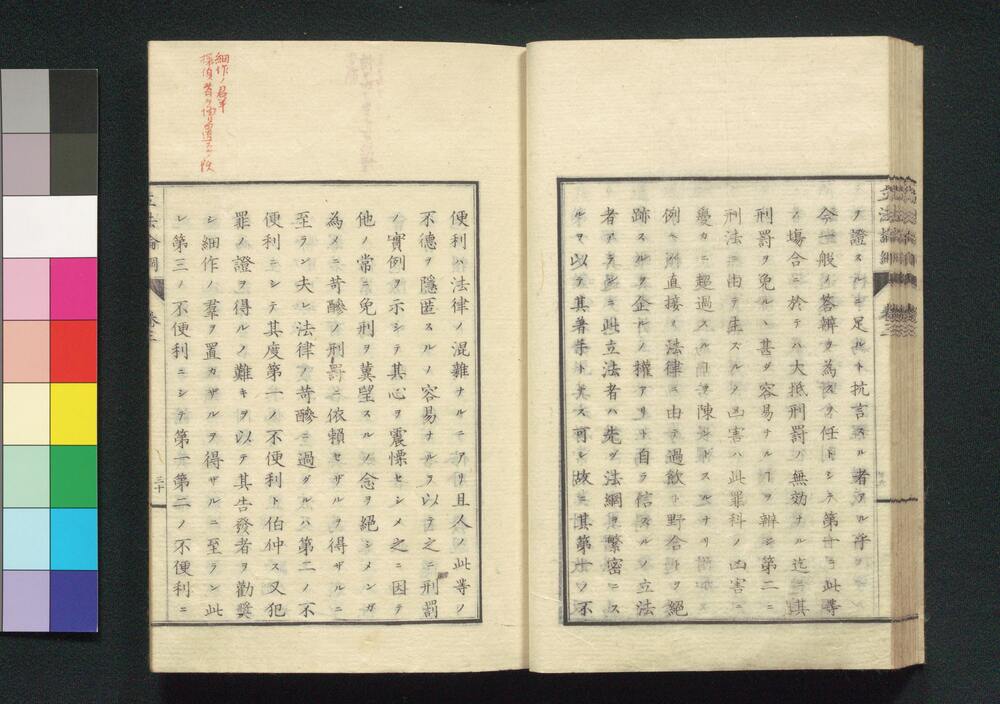 ヲ證スルニ足ルト抗言スル者アル乎ヲ
今一般ノ答辨ヲ為スヲ任トシテ第一ニ此等
ノ塲合ニ於テハ大抵刑罰ノ無効ナル迄ニ其
刑罰ヲ免ルヽ甚ダ容易ナルヿヲ辨ジ第二ニ
刑法ニ由テ生ズルノ凶害ハ此罪科ノ凶害ニ
遥カニ超過スルヿヲ陳ントスルナリ
例ヘバ直接ノ法律ニ由テ過飲ト野合トヲ絕
跡スルヲ企ルノ權アリト自ラ信スルノ立法
者アランニ此立法者ハ先ヅ法綱ヲ繁密ニス
ルヲ以テ其著手ト美ス可シ故ニ其第一ノ不
便利ハ法律ノ混雜ナルニアリ且人ノ此等ノ
不德ヲ隱匿スルノ容易ナルヲ以テ之ニ刑罰
ノ實例ヲ示シテ其心ヲ震慄セシメ之ニ因テ
他ノ常ニ免刑ヲ冀望スルノ念ヲ絕シメンガ
為メニ苛酷ノ刑罰ニ依賴セザルヲ得ザルニ
至ラン夫レ法律ノ苛酷ニ過グルハ第二ノ不
便利ニシテ其度第一ノ不便利ト伯仲ス又犯
罪ノ證ヲ得ルノ難キヲ以テ其告發者ヲ勸獎
シ細作ノ羣ヲ置カザルヲ得ザルニ至ラン此
レ第三ノ不便利ニシテ第一第二ノ不便利ニ
立法論綱 卷二
三十
細作ノ羣
探偵者
立法論綱 卷二